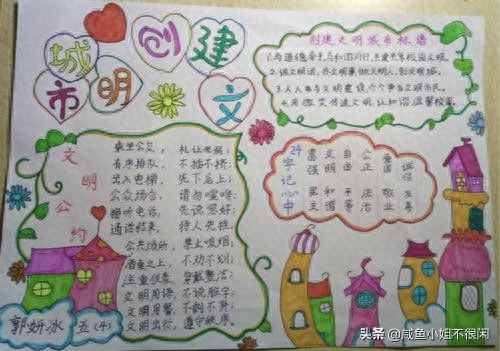 城 创 建
市 明 文
创建文明城市标语
1.与道德牵手,与和谐同行,共建共享校园文明。
2.说文明话,办文明事,做文明人,创文明城。
3.人人参与文明建设,个个争当文明市民。
4.用微笑传递文明,让和谐温馨校园。
文明公约
乘坐公交, 礼让老弱;
有序排队, 不插不挤;
出入电梯, 先下后上;
公众场合, 请勿喧哗;
接听电话, 先说您好;
通话结束, 待人先挂;
公共场所, 禁止吸烟;
之上, 不劝不划;
注重仪表, 穿戴整洁;
文明用语, 不说脏字;
文明用餐, 不剩不弃;
文明出行, 遵守秩序。
24字记心中
富强 文明 自由 公正 爱国 诚信
民主 和谐 平等 法治 敬业 友善
郭妍冰 五(4)
头条 @咸鱼小姐不很闲